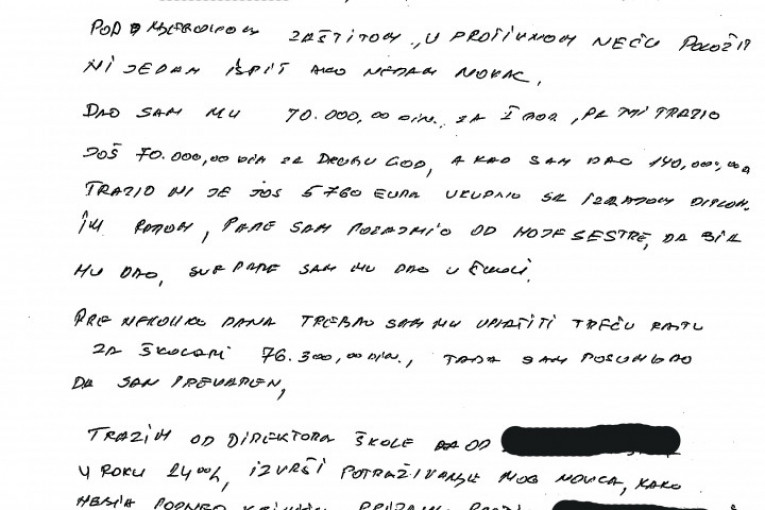 POD NJEGOVOM ZAŠTITOM, U PROTIVNOM NEĆU POLOŽIT
NI JEDAN ISPIT AKO NEDAM NOVAC.
DAO SAM MU 70.000,00 DIN. ZA I GOD, PA MI TRAZIO
JOŠ 70.000,00 DIN ZA DRUGU GOD, A KAO SAM DAO 140,000,00
TRAZIO MI JE JOS 5760 EURA UKUPNO SA IZRADOM DIPLOM.
IM RADOM, PARE SAM POZAJMIO OD MOJE SESTRE, DA BIH
MU DAO, SVE PARE SAM MU DAO U ŠKOLI.
PRE NEKOLIKO DANA TREBAO SAM MU UPLATITI TREĆU RATU
ZA ŠKOLARI 76.300,00 DIN., TADA SAM POSUMNJAO
DA SAM PREVAREN,
TRAZIM OD DIREKTORA ŠKOLE DA OD
U ROKU 24 00h, IZVRŠI POTRAŽIVANJE MOG NOVCA, KAKO
NEBIH PODNEO